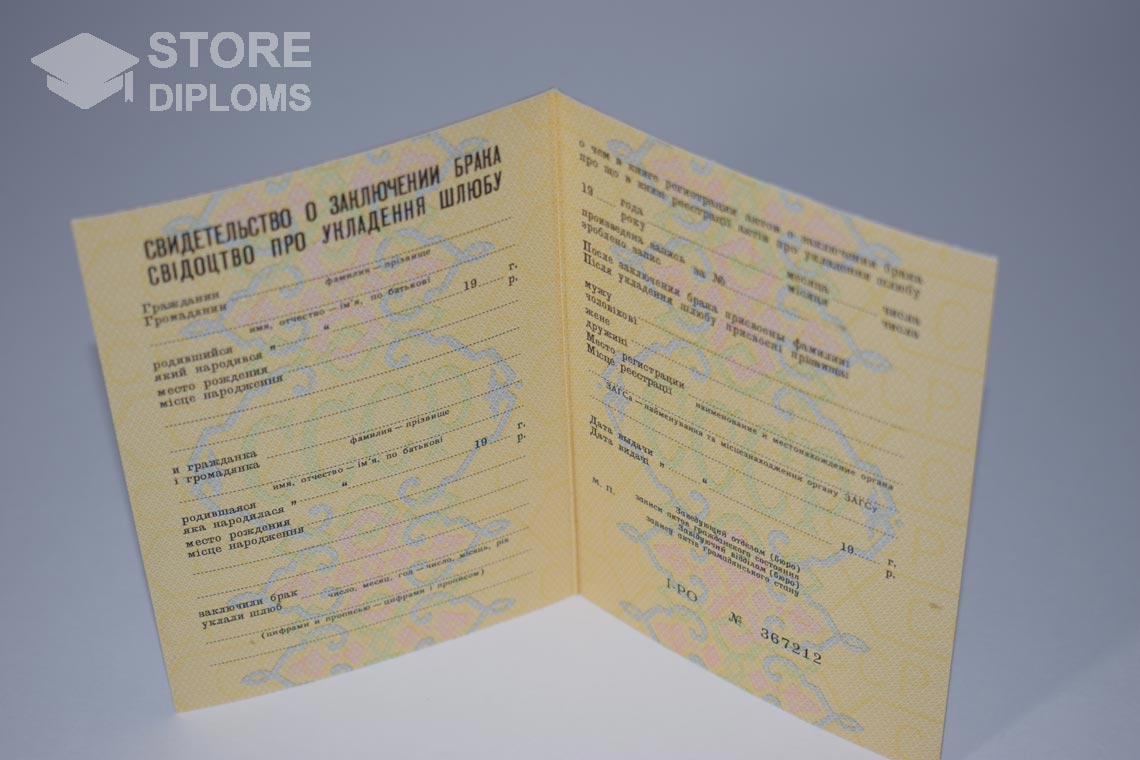 STORE
DIPLOMS
СВИДЕТЕЛЬСТВО О ЗАКЛЮЧЕНИИ БРАКА
СВІДОЦТВО ПРО УКЛАДЕННЯ ШЛЮБУ
Гражданин
Громадянин
фамилия — прізвище
имя, отчество — ім'я, по батькові
родившийся „ “ 19 г.
який народився р.
место рождения
місце народження
и гражданка
і громадянка
фамилия — прізвище
имя, отчество — ім'я, по батькові
родившаяся „ “ 19 г.
яка народилася р.
место рождения
місце народження
заключили брак
уклали шлюб
число, месяц, год — число, місяць, рік
(цифрами и прописью — цифрами і прописом)
о чем в книге регистрации актов о заключении брака
про що в книзі реєстрації актів про укладення шлюбу
19 года месяца числа
року місяця числа
произведена запись за №
зроблено запис
После заключения брака присвоены фамилии:
Після укладення шлюбу присвоєні прізвища:
мужу
чоловікові
жене
дружині
Место регистрации
Місце реєстрації
наименование и местонахождение органа
ЗАГСа — найменування та місцезнаходження органу ЗАГСу
Дата выдачи „ “ 19 г.
Дата видачі р.
М. П.
Заведующий отделом (бюро)
записи актов гражданского состояния
Завідуючий відділом (бюро)
запису актів громадянського стану
I-РО № 367212